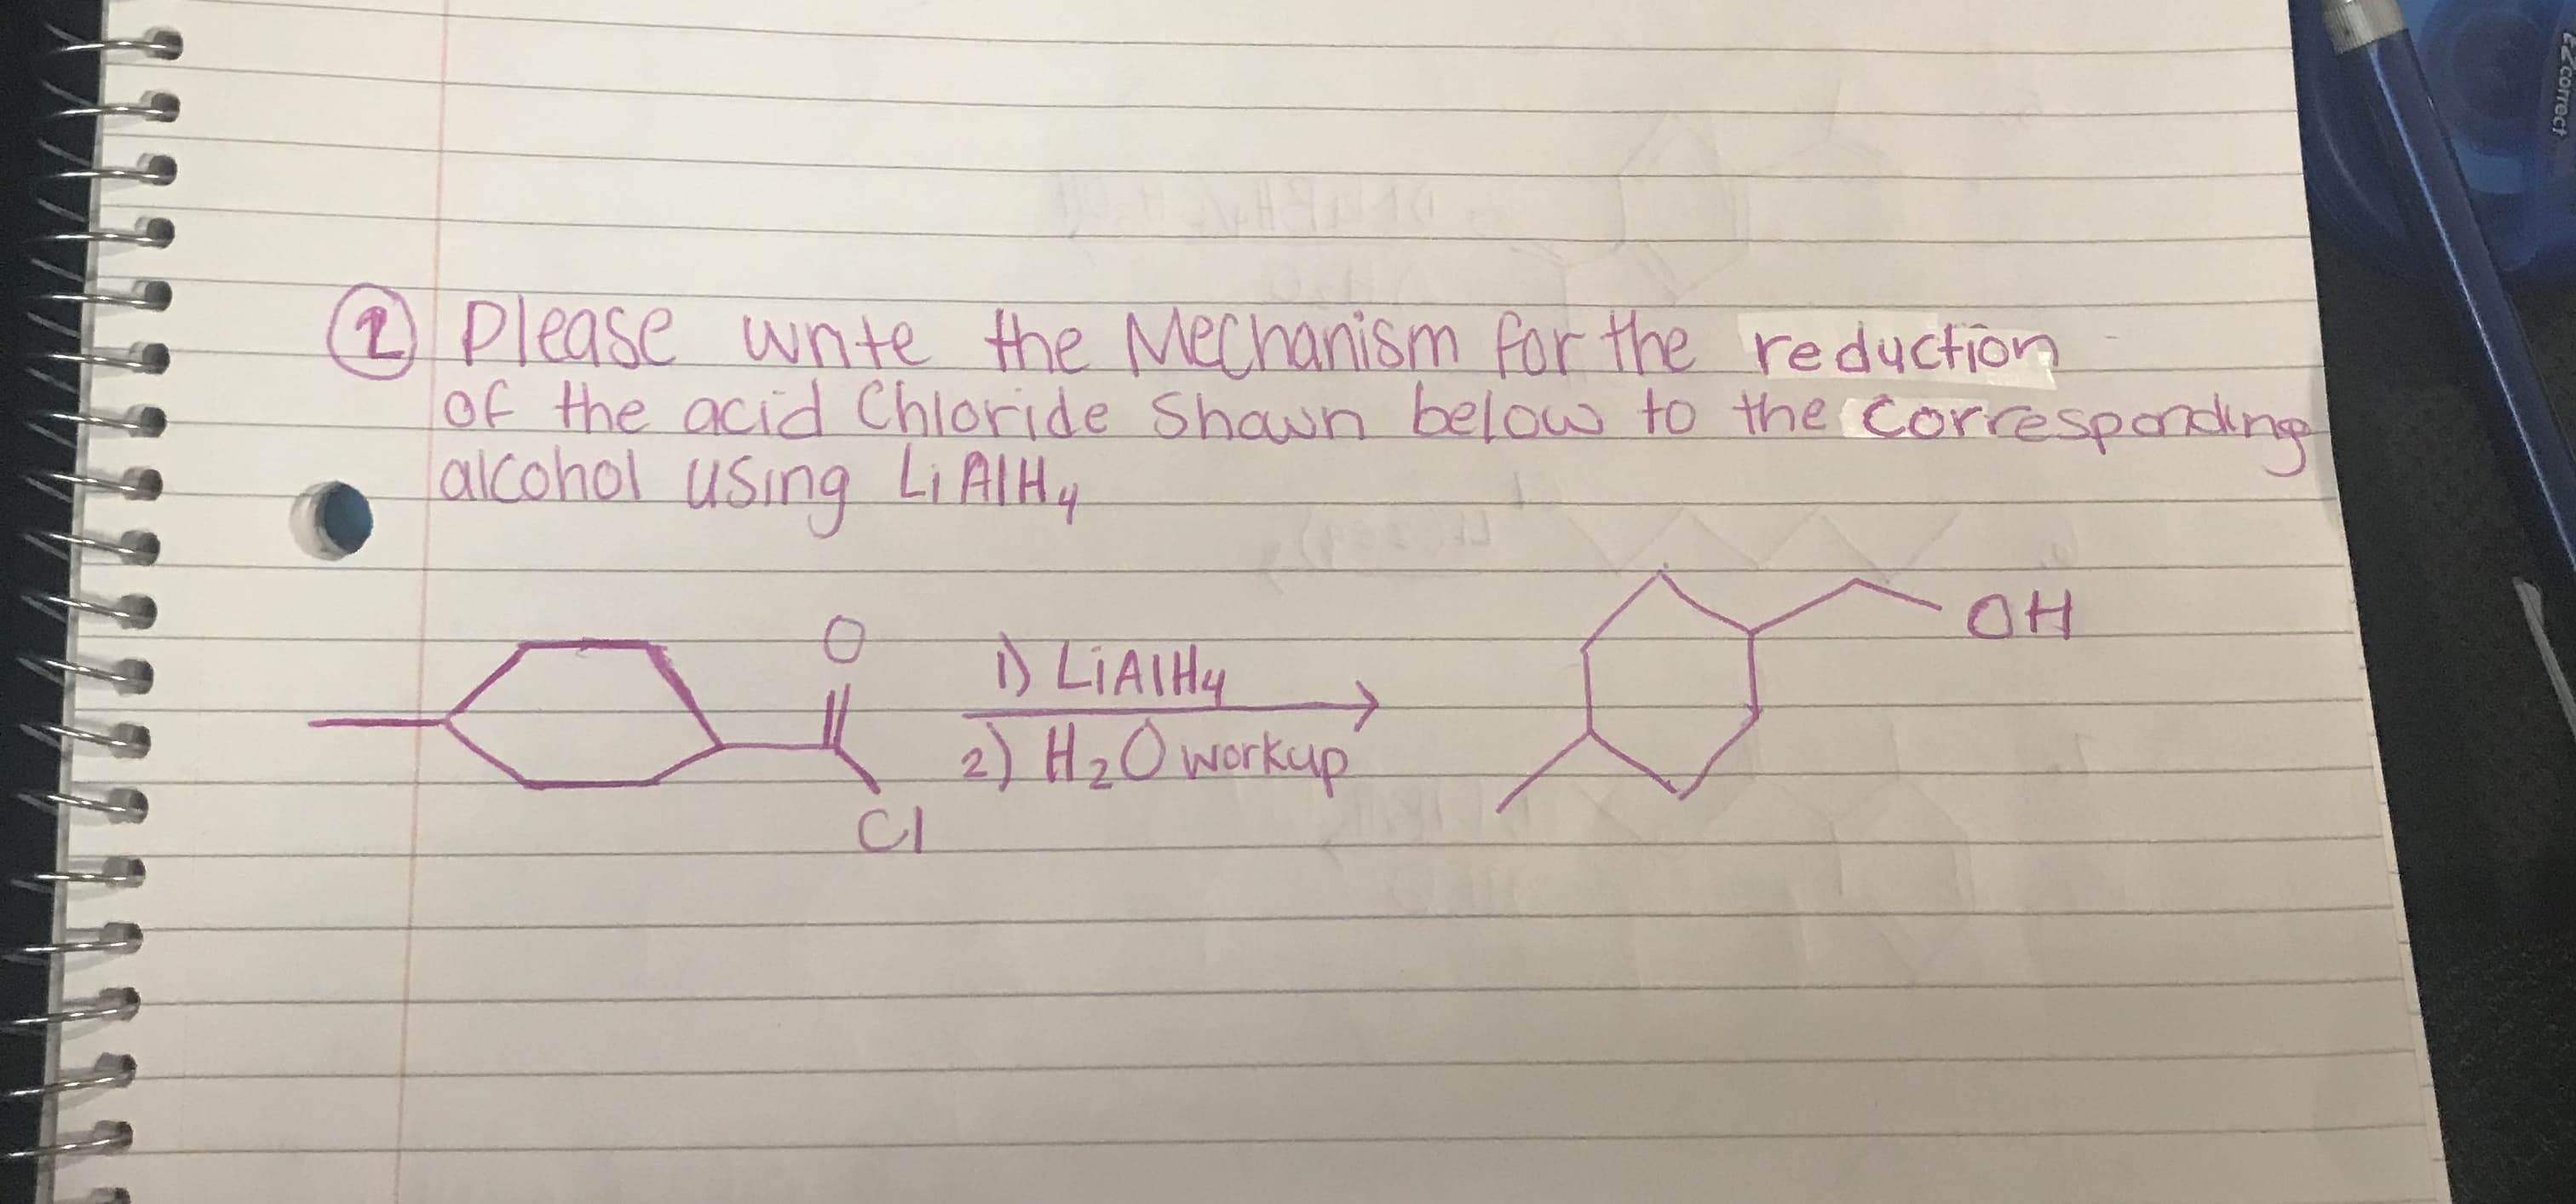 1 Please write the Mechanism for the reduction
of the acid Chloride shown below to the corresponding
alcohol using LiAlH₄
O
Cl
1) LiAlH₄
2) H₂O workup
OH
EZcorrect